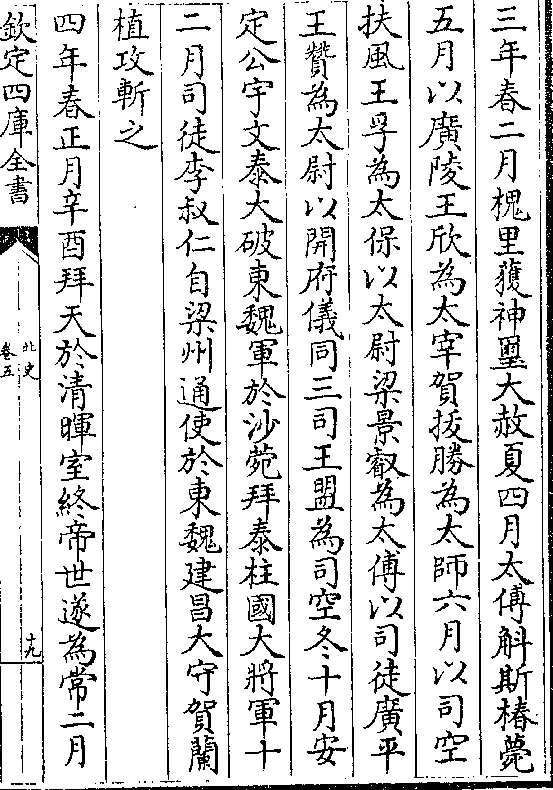 三年春二月槐里獲神璽大赦夏四月太傅斛斯椿薨
五月以廣陵王欣為太宰賀拔勝為太師六月以司空
扶風王孚為太保以太尉梁景叡為太傅以司徒廣平
王贊為太尉以開府儀同三司王盟為司空冬十月安
定公宇文泰大破東魏軍於沙苑拜泰柱國大將軍十
二月司徒李叔仁自梁州通使於東魏建昌大守賀蘭
植攻斬之
四年春正月辛酉拜天於清暉室終帝世遂為常二月
欽定四庫全書
北史
卷五
十九